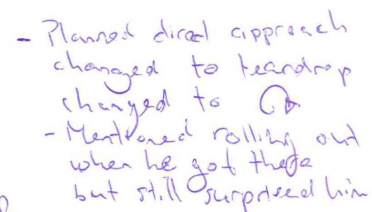 - Planned direct approach
changed to teardrop
changed to
- Mentioned rolling out
when he got there
but still surprised him